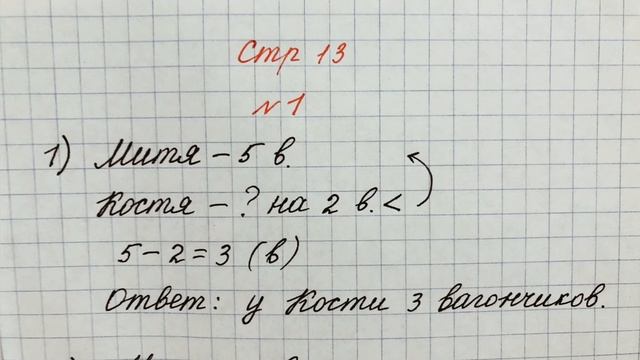 Стр 13
№1
1) Митя – 5 в.
Костя – ? на 2 в. <
5 – 2 = 3 (в)
Ответ: у Кости 3 вагончиков.